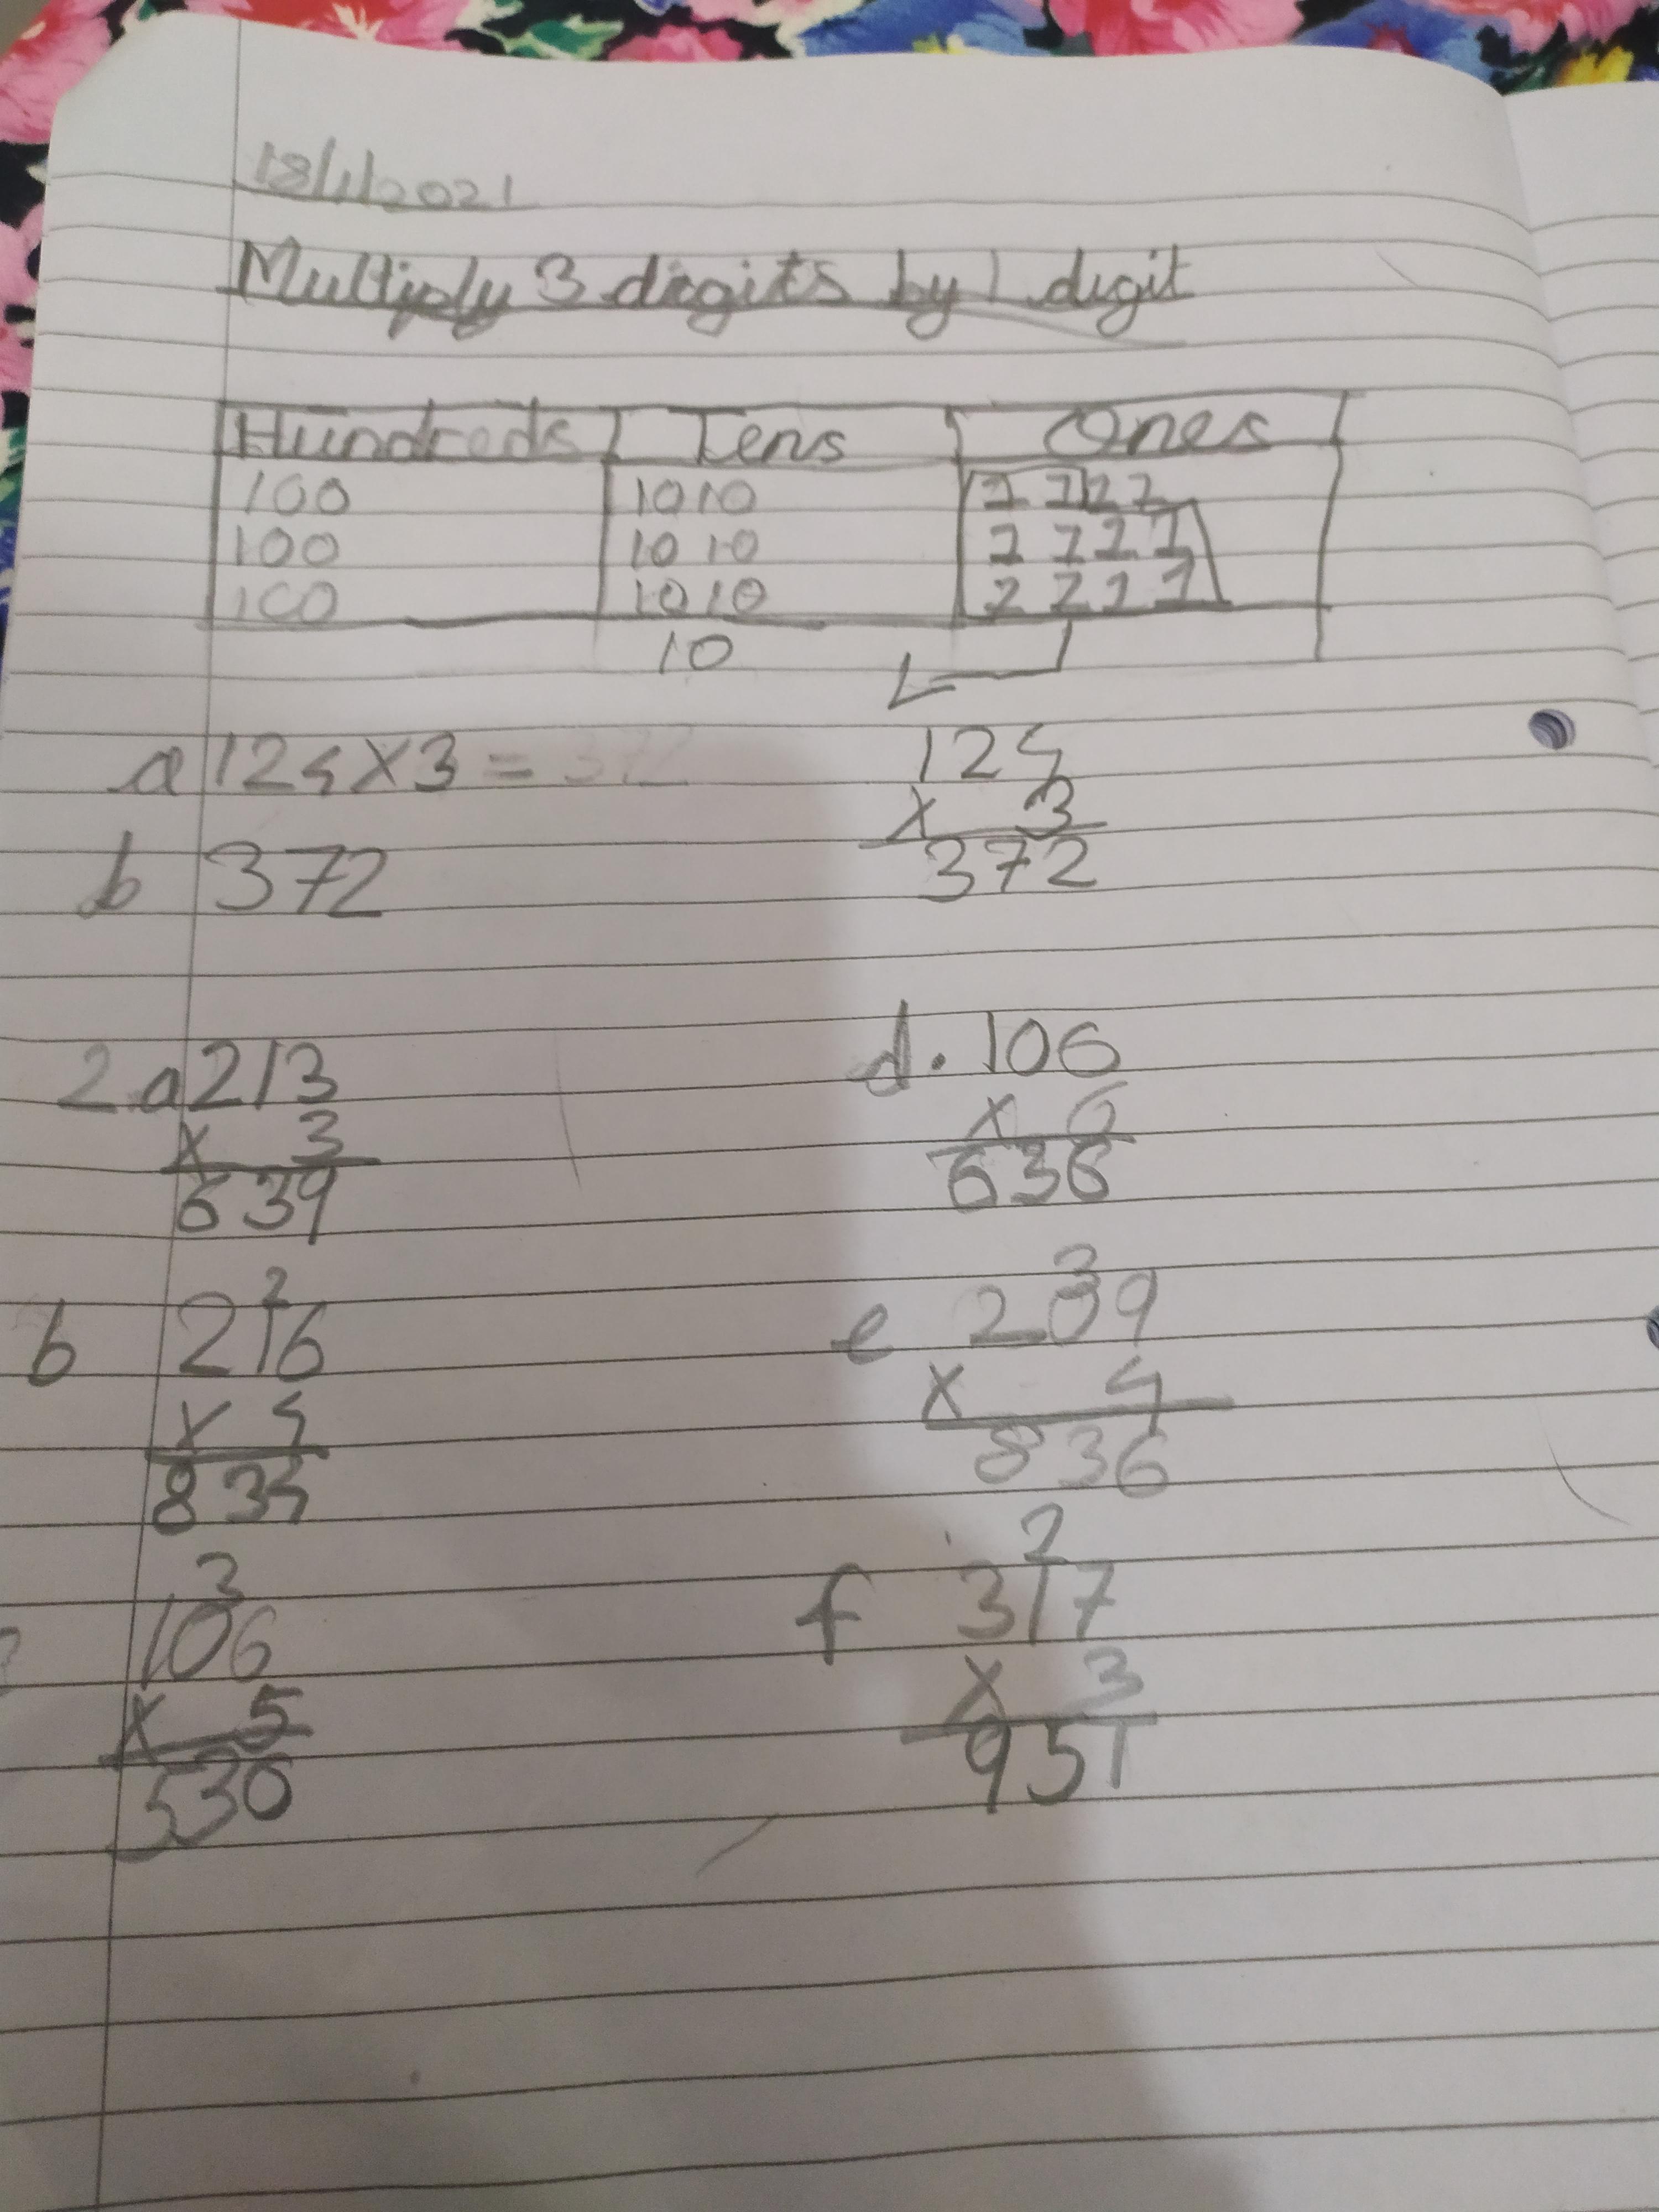 18/1/2021
Multiply 3 digits by 1 digit
Hundreds Tens Ones
100 10 10 1 1 1 1
100 10 10 1 1 1 1
100 10 10 1 1 1 1
10
a 124 x 3 = 372
b 372
124
x 3
372
2.a 213
x 3
639
b 2
216
x 4
834
3
106
x 5
530
d. 106
x 6
636
3
e 209
x 4
836
2
f 317
x 3
951